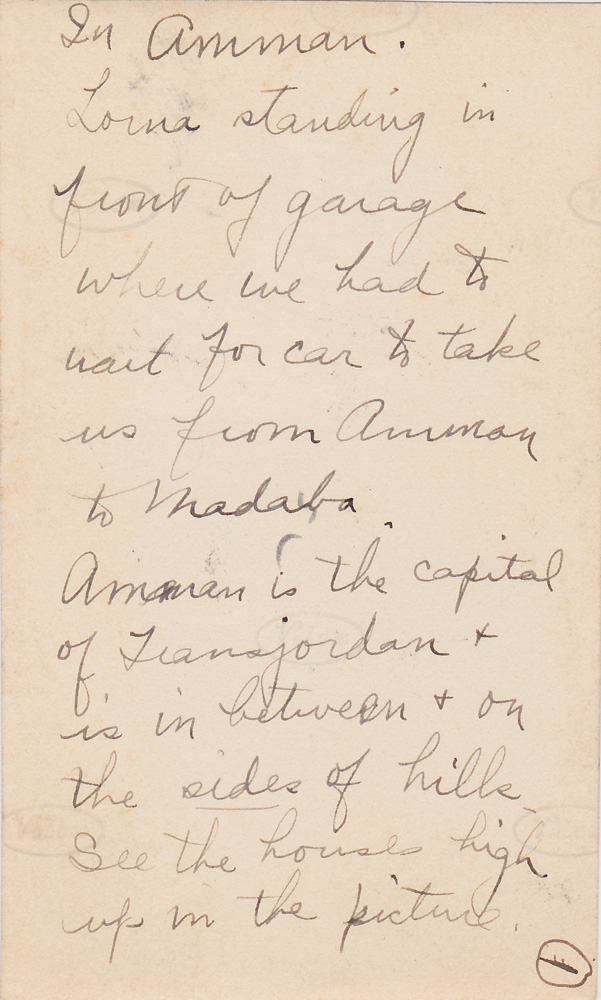 In Amman.
Lorna standing in
front of garage
where we had to
wait for car to take
us from Amman
to Madaba.
Amman is the capital
of Transjordan +
is in between + on
the sides of hills.
See the houses high
up in the picture.